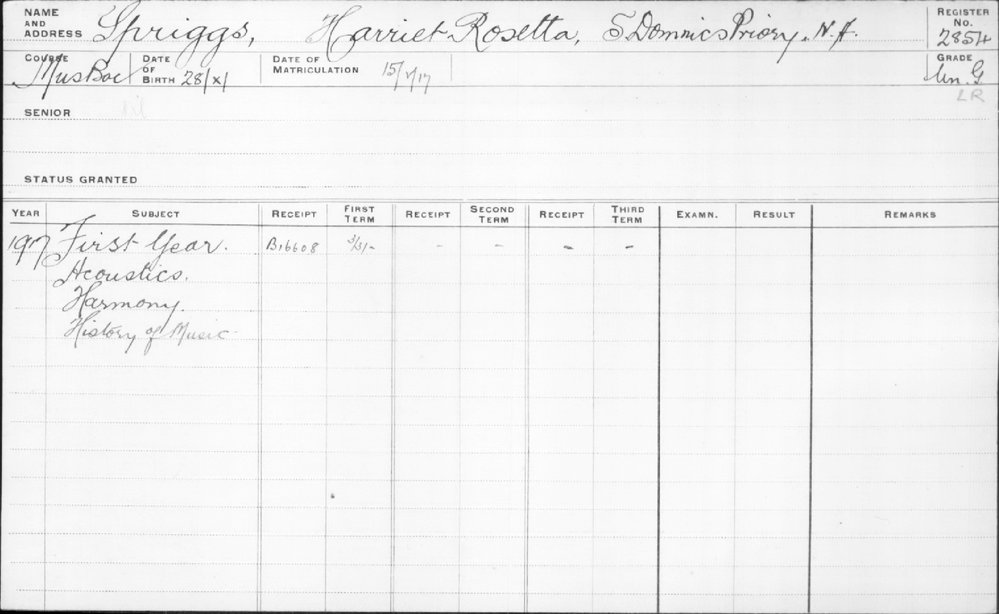 NAME AND ADDRESS Spriggs, Harriet Rosetta, S. Dominics Priory, N.A. REGISTER No. 2854
COURSE MusBac DATE OF BIRTH 28/XI DATE OF MATRICULATION 15/V/17 GRADE Un. G.
LR
SENIOR
STATUS GRANTED
YEAR SUBJECT RECEIPT FIRST TERM RECEIPT SECOND TERM RECEIPT THIRD TERM EXAMN. RESULT REMARKS
1917 First Year. B16608 3/31/- - - - -
Acoustics.
Harmony.
History of Music